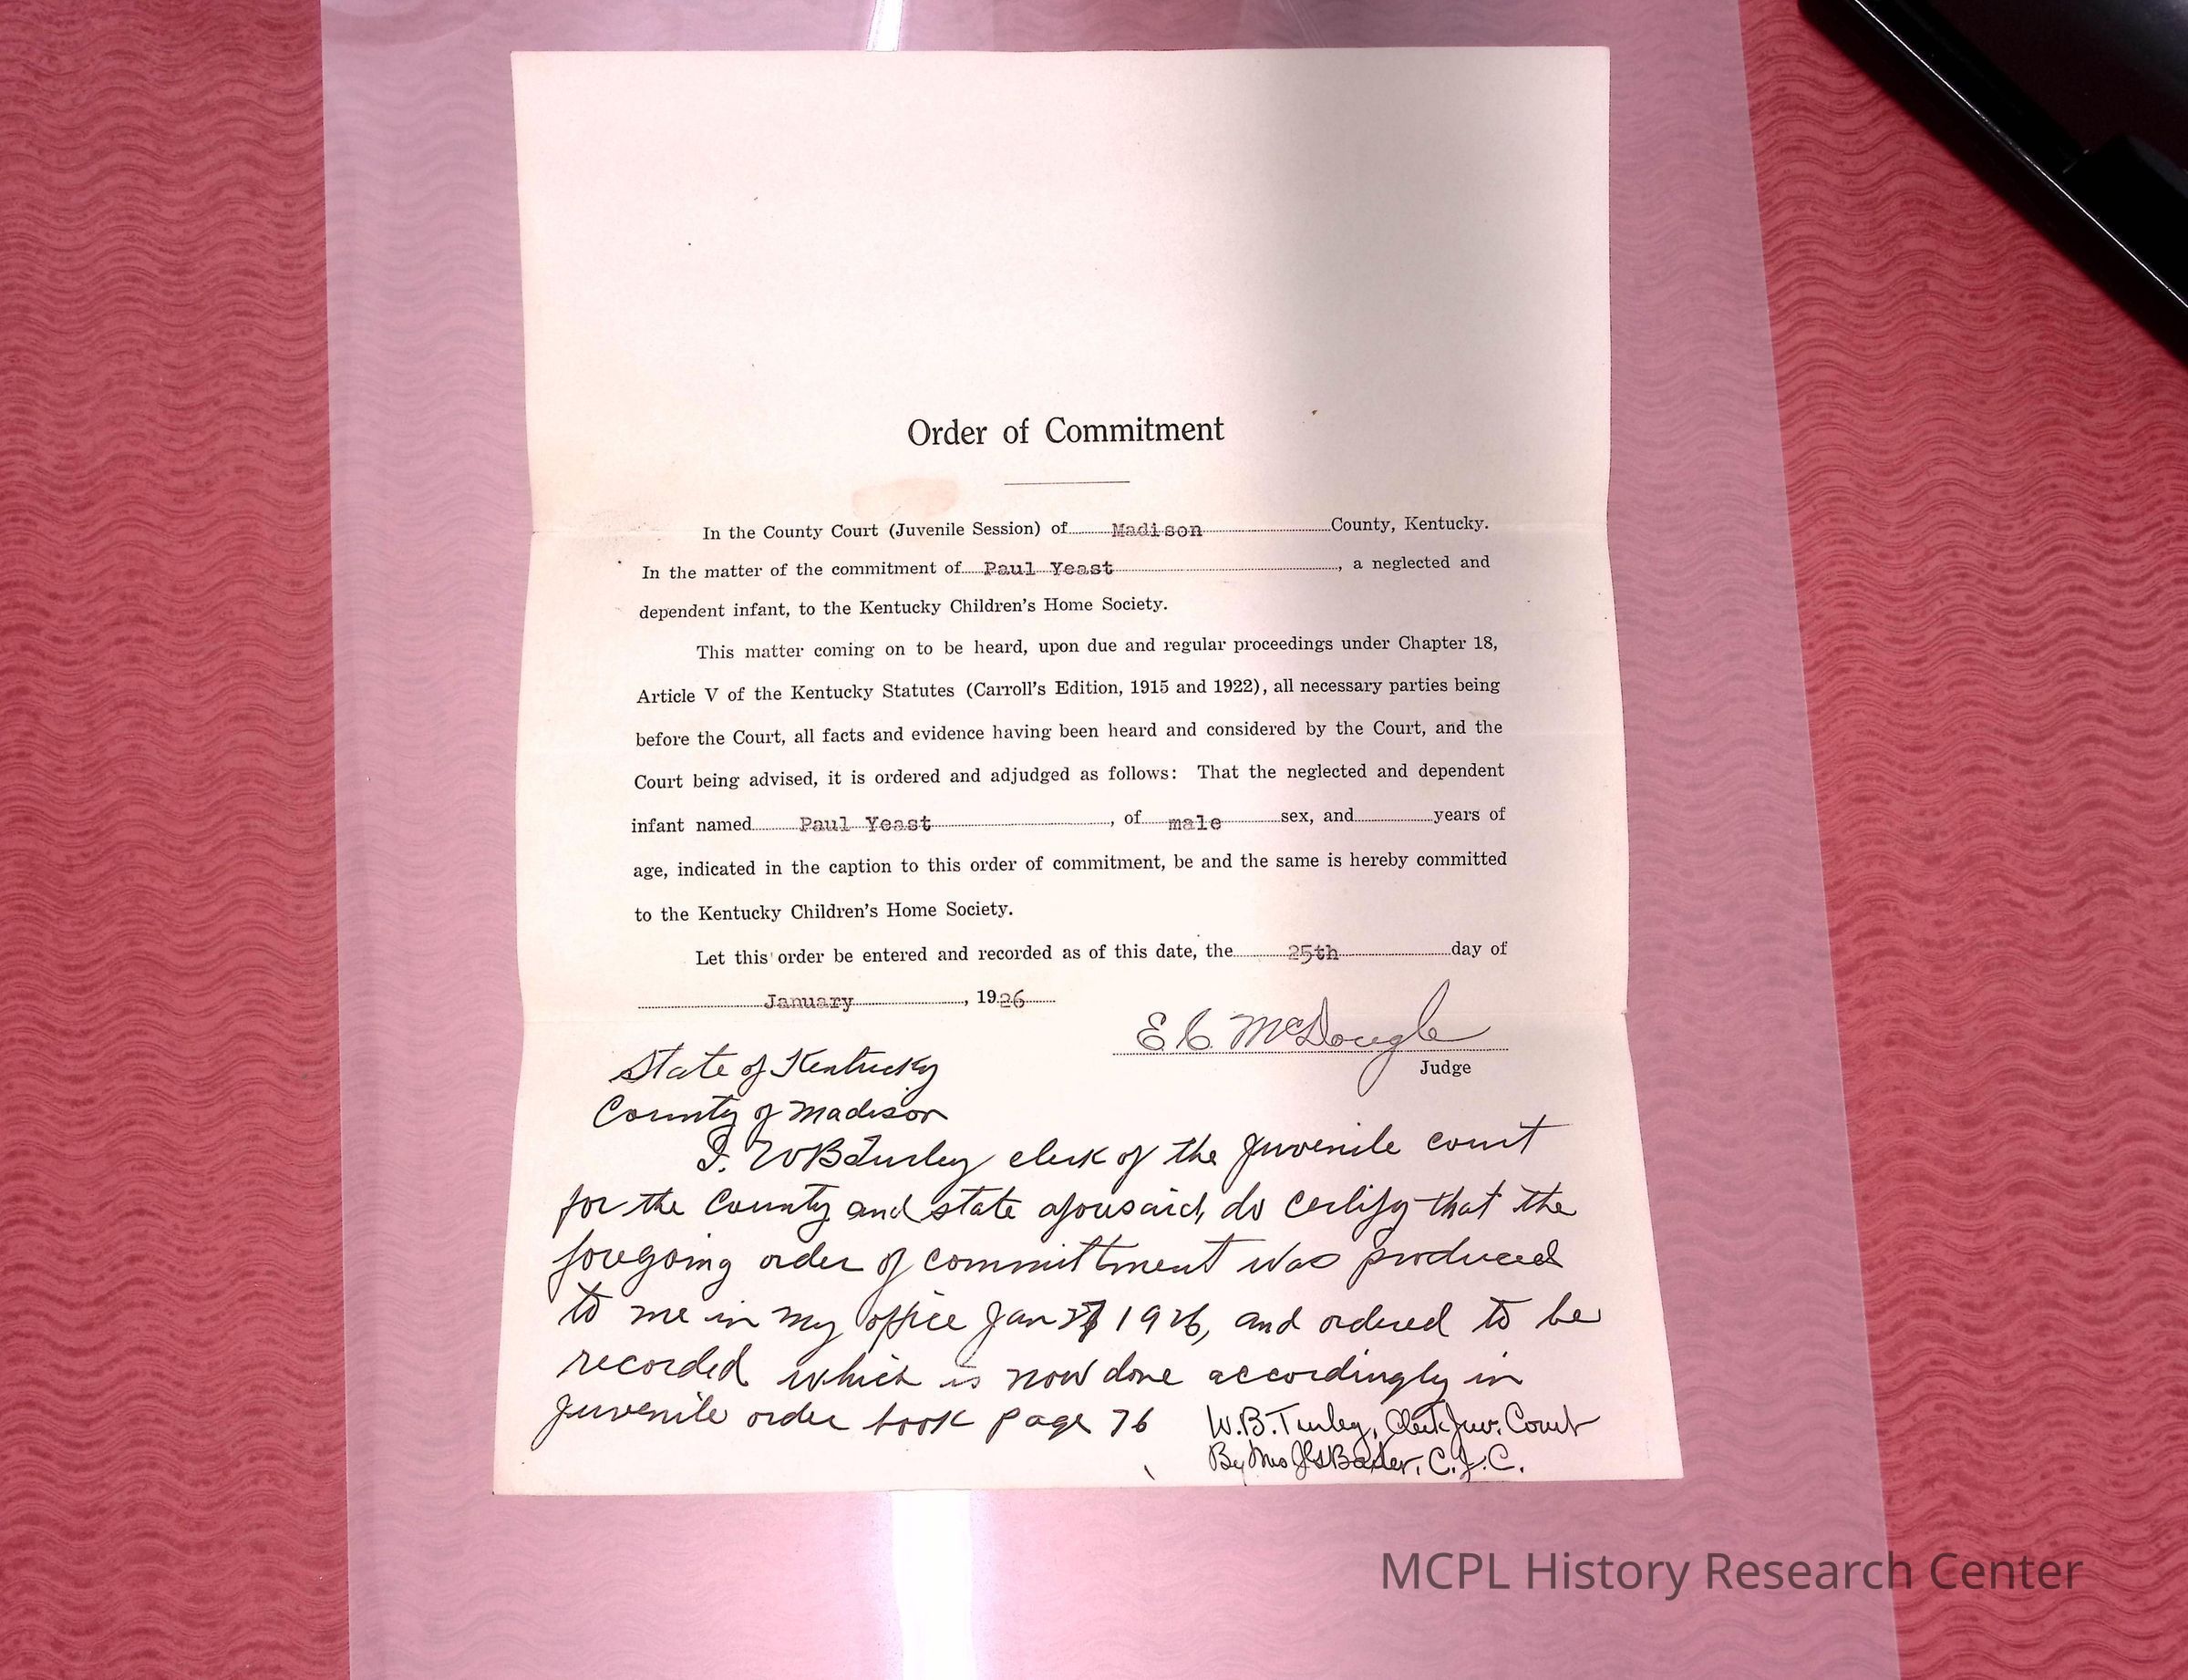 Order of Commitment
In the County Court (Juvenile Session) of Madison County, Kentucky.
In the matter of the commitment of Paul Yeast, a neglected and
dependent infant, to the Kentucky Children's Home Society.
This matter coming on to be heard, upon due and regular proceedings under Chapter 18,
Article V of the Kentucky Statutes (Carroll's Edition, 1915 and 1922), all necessary parties being
before the Court, all facts and evidence having been heard and considered by the Court, and the
Court being advised, it is ordered and adjudged as follows: That the neglected and dependent
infant named Paul Yeast, of male sex, and years of
age, indicated in the caption to this order of commitment, be and the same is hereby committed
to the Kentucky Children's Home Society.
Let this order be entered and recorded as of this date, the 25th day of
January, 1926
E C McDougle
Judge
State of Kentucky
County of Madison
I. W B Turley clerk of the Juvenile court
for the County and state aforesaid, do certify that the
foregoing order of committment was produced
to me in my office Jan 1926, and ordered to be
recorded which is now done accordingly in
Juvenile order book page 76
W.B. Turley, Clerk Juv. Court
By Mrs Baxter, C.J.C.
MCPL History Research Center